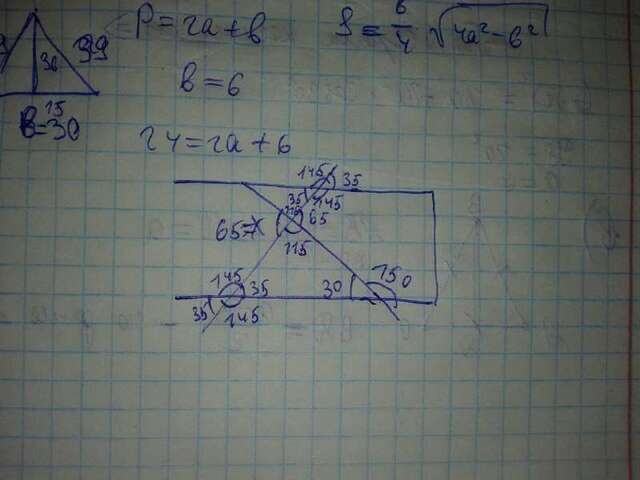 P = 2a + в
S = в/4 √4a² - в²
39
36
15
в = 30
в = 6
24 = 2a + 6
145 35
35 145
115 65
65 = x
115
145 35
30 150
35 145